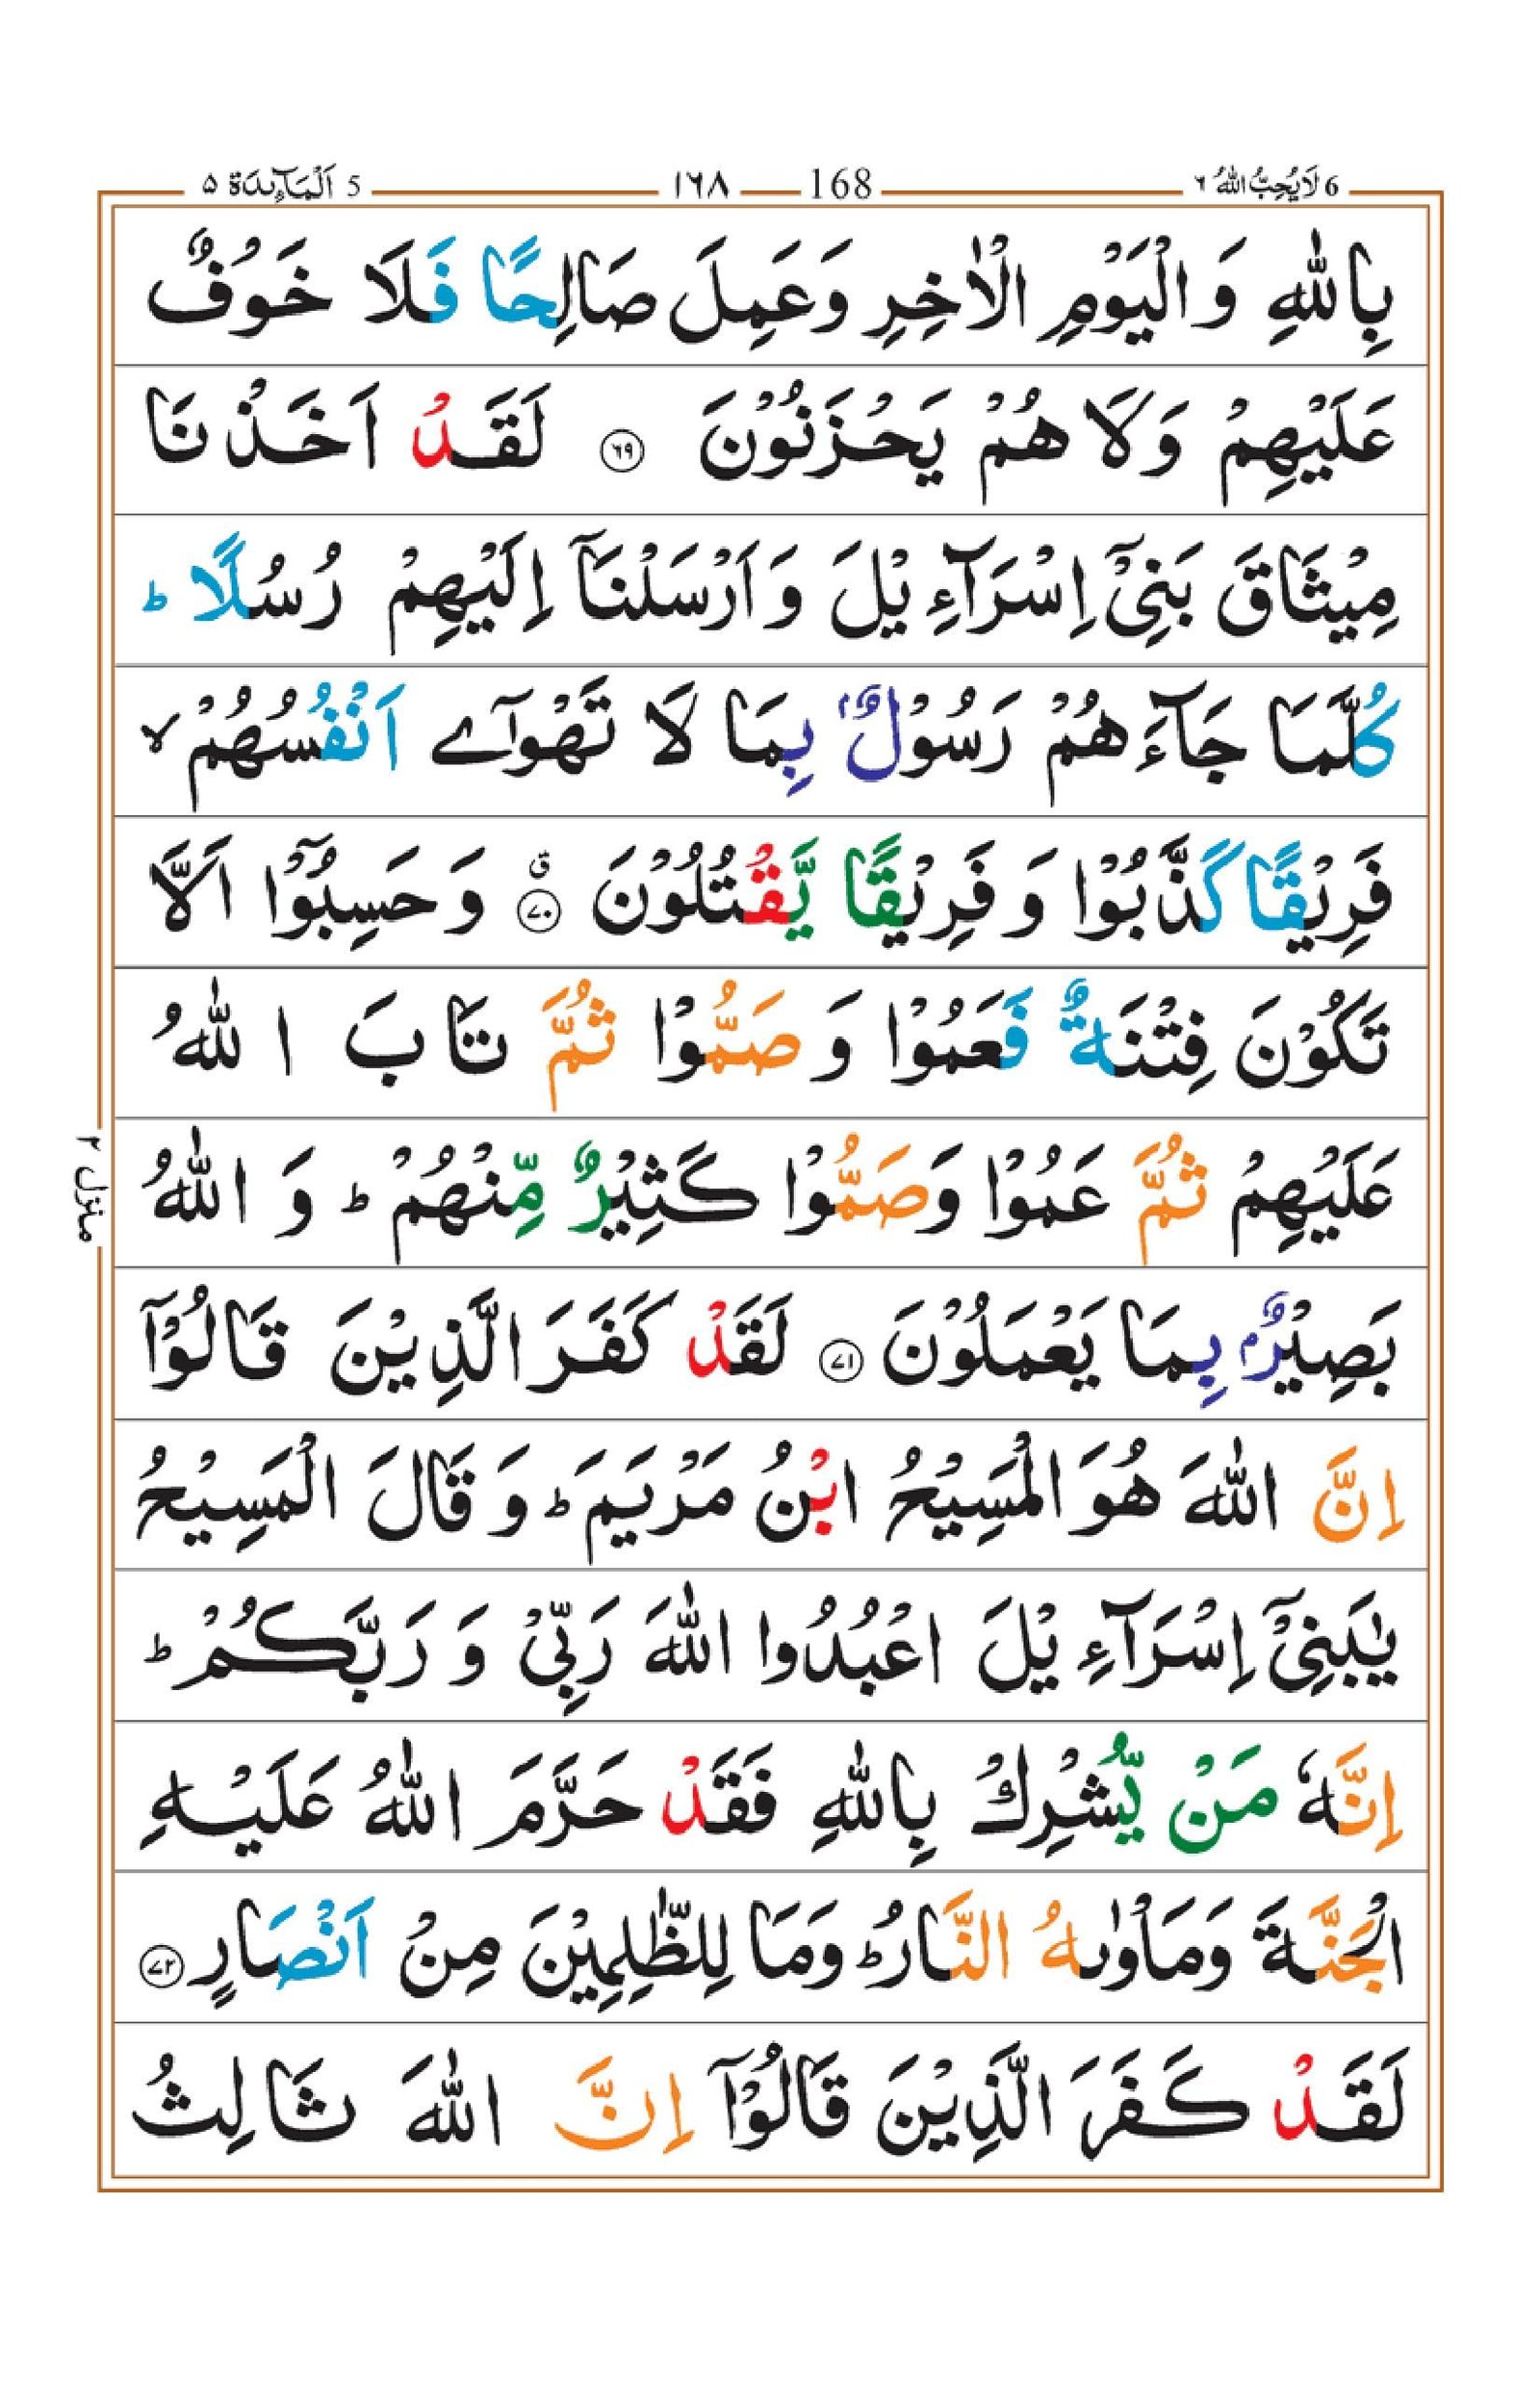 6 لَا يُحِبُّ اللهُ ٦ 168 ١٦٨ 5 اَلْمَآئِدَة ٥
بِاللّٰهِ وَ الْيَوْمِ الْاٰخِرِ وَ عَمِلَ صَالِحًا فَلَا خَوْفٌ
عَلَيْهِمْ وَلَا هُمْ يَحْزَنُوْنَ ﴿٦٩﴾ لَقَدْ اَخَذْنَا
مِيْثَاقَ بَنِيْۤ اِسْرَآءِيْلَ وَ اَرْسَلْنَاۤ اِلَيْهِمْ رُسُلًا ؕ
كُلَّمَا جَآءَهُمْ رَسُوْلٌۢ بِمَا لَا تَهْوٰۤى اَنْفُسُهُمْ ۙ
فَرِيْقًا كَذَّبُوْا وَ فَرِيْقًا يَّقْتُلُوْنَ ﴿٧٠﴾ ۗ وَ حَسِبُوْۤا اَلَّا
تَكُوْنَ فِتْنَةٌ فَعَمُوْا وَ صَمُّوْا ثُمَّ تَابَ اللّٰهُ
عَلَيْهِمْ ثُمَّ عَمُوْا وَصَمُّوْا كَثِيْرٌ مِّنْهُمْ ؕ وَ اللّٰهُ
بَصِيْرٌۢ بِمَا يَعْمَلُوْنَ ﴿٧١﴾ لَقَدْ كَفَرَ الَّذِيْنَ قَالُوْۤا
اِنَّ اللّٰهَ هُوَ الْمَسِيْحُ ابْنُ مَرْيَمَ ؕ وَ قَالَ الْمَسِيْحُ
يٰبَنِيْۤ اِسْرَآءِيْلَ اعْبُدُوا اللّٰهَ رَبِّيْ وَ رَبَّكُمْ ؕ
اِنَّهٗ مَنْ يُّشْرِكْ بِاللّٰهِ فَقَدْ حَرَّمَ اللّٰهُ عَلَيْهِ
الْجَنَّةَ وَمَاْوٰىهُ النَّارُ ؕ وَمَا لِلظّٰلِمِيْنَ مِنْ اَنْصَارٍ ﴿٧٢﴾
لَقَدْ كَفَرَ الَّذِيْنَ قَالُوْۤا اِنَّ اللّٰهَ ثَالِثُ
منزل ٢